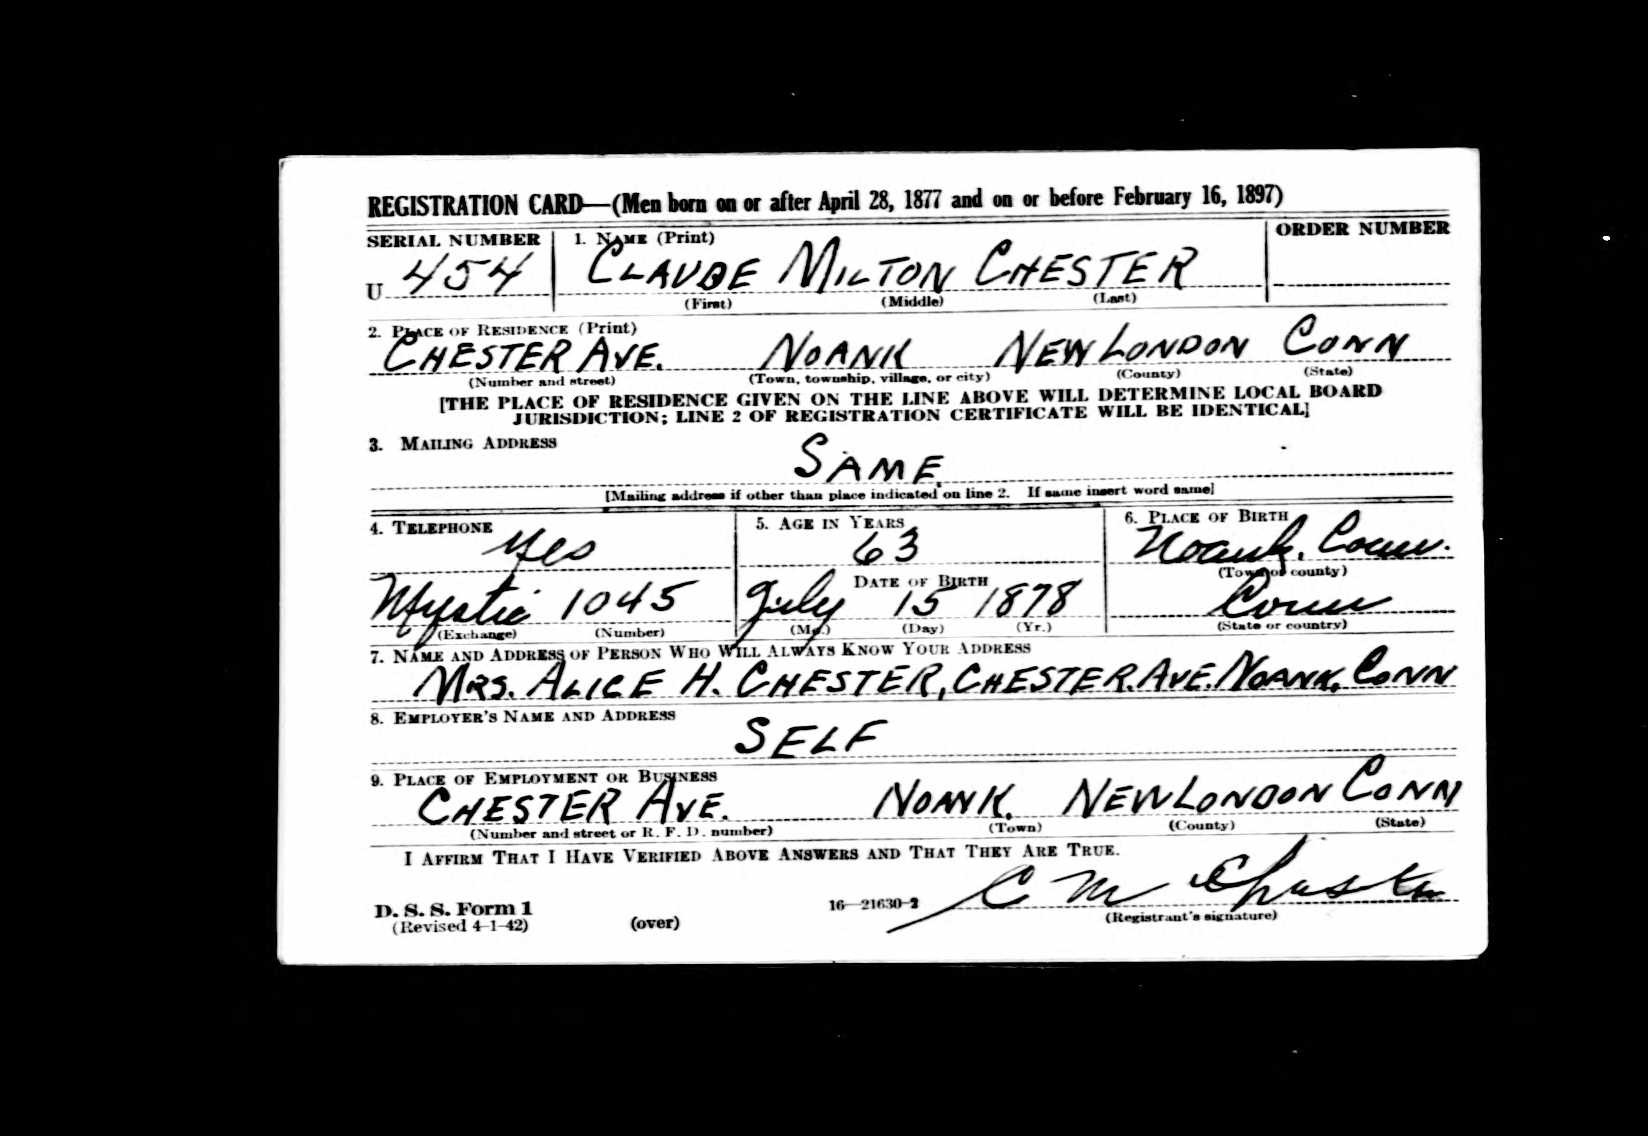 REGISTRATION CARD—(Men born on or after April 28, 1877 and on or before February 16, 1897)
SERIAL NUMBER
U 454
1. NAME (Print)
CLAUDE MILTON CHESTER
(First) (Middle) (Last)
ORDER NUMBER
2. PLACE OF RESIDENCE (Print)
CHESTER AVE. NOANK NEW LONDON CONN
(Number and street) (Town, township, village, or city) (County) (State)
[THE PLACE OF RESIDENCE GIVEN ON THE LINE ABOVE WILL DETERMINE LOCAL BOARD
JURISDICTION; LINE 2 OF REGISTRATION CERTIFICATE WILL BE IDENTICAL]
3. MAILING ADDRESS
SAME
[Mailing address if other than place indicated on line 2. If same insert word same]
4. TELEPHONE
Yes
Mystic 1045
(Exchange) (Number)
5. AGE IN YEARS
63
DATE OF BIRTH
July 15 1878
(Mo.) (Day) (Yr.)
6. PLACE OF BIRTH
Noank, Conn.
(Town or county)
Conn
(State or country)
7. NAME AND ADDRESS OF PERSON WHO WILL ALWAYS KNOW YOUR ADDRESS
MRS. ALICE H. CHESTER, CHESTER AVE. NOANK, CONN
8. EMPLOYER'S NAME AND ADDRESS
SELF
9. PLACE OF EMPLOYMENT OR BUSINESS
CHESTER AVE. NOANK. NEW LONDON CONN
(Number and street or R. F. D. number) (Town) (County) (State)
I AFFIRM THAT I HAVE VERIFIED ABOVE ANSWERS AND THAT THEY ARE TRUE.
C M Chester
(Registrant's signature)
D. S. S. Form 1
(Revised 4-1-42)
(over)
16—21630-2